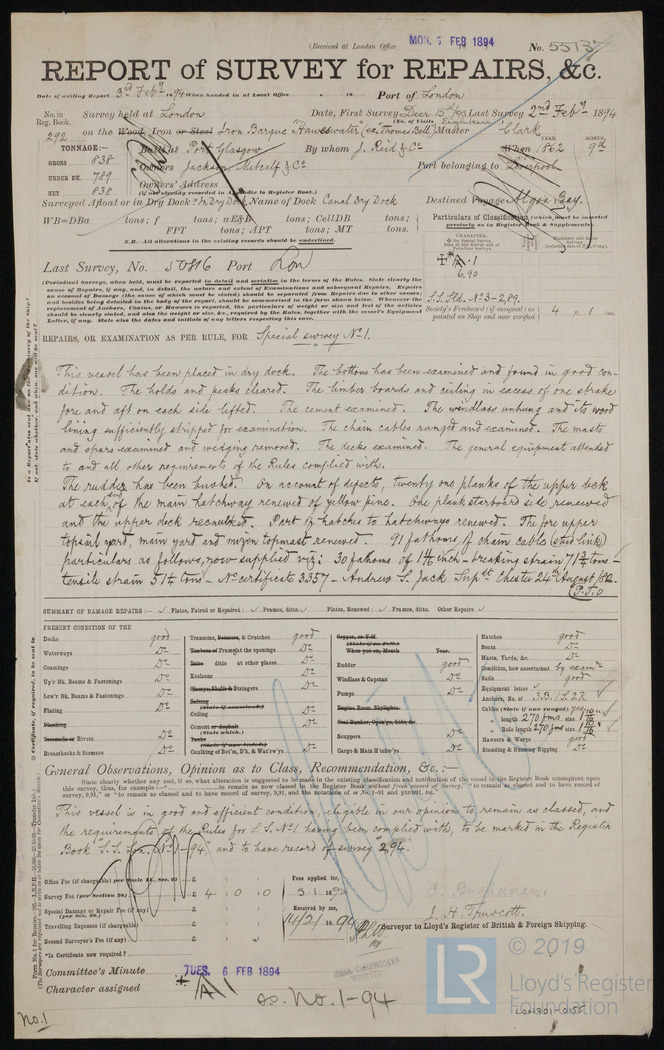 (Received at London Office MON. 5 FEB 1894 No. 5513
REPORT of SURVEY for REPAIRS, &c.
Date of writing Report 3rd Feby 1894 When handed in at Local Office 18 Port of London
No. in Reg. Book. Survey held at London Date, First Survey Decr 15th /93 Last Survey 2nd Feby 1894
(No. of Visits Eighteen)
292 on the Wood, Iron or Steel Iron Barque "Haweswater" (ex "Thomas Bell") Master Clark
TONNAGE:— Built at Port Glasgow By whom J. Reid & Co When 1862 YEAR. MONTH. 9th
GROSS 838 Owners Jackson Metcalf & Co Port belonging to Liverpool
UNDER DK. 789 Owners' Address
NET 838 (if not already recorded in Appendix to Register Book.)
Surveyed Afloat or in Dry Dock? In Dry Dock Name of Dock Canal Dry Dock Destined Voyage Algoa Bay.
WB=DBa tons; f tons; uE&B tons; CellDB tons;
FPT tons; APT tons; MT tons.
N.B.—All alterations in the existing records should be underlined.
Particulars of Classification (which must be inserted precisely as in Register Book & Supplements).
CHARACTER.
A 1
6,90
Last Survey, No. 50816 Port Lon
S.S. Sld. No 3-2,89.
Society's Freeboard (if assigned) as painted on Ship and now verified 4 ft. 1 ins.
(Periodical Surveys, when held, must be reported in detail and seriatim in the terms of the Rules. State clearly the cause of Repairs, if any, and, in detail, the nature and extent of Examinations and subsequent Repairs. Repairs on account of Damage (the cause of which must be stated) should be separated from Repairs due to other causes; and besides being detailed in the body of the report, should be summarized in the form shown below. Whenever the replacement of Anchors, Chains, or Hawsers is reported, the particulars of weight or size and test of the articles should be clearly stated, and also the weight or size, &c., required by the Rules, together with the vessel's Equipment Letter, if any. State also the dates and initials of any letters respecting this case.
REPAIRS, OR EXAMINATION AS PER RULE, FOR Special survey No 1.
This vessel has been placed in dry dock. The bottom has been examined and found in good con-
dition. The holds and peaks cleared. The limber boards and ceiling in excess of one strake
fore and aft on each side lifted. The cement examined. The windlass unhung and its wood
lining sufficiently stripped for examination. The chain cables ranged and examined. The masts
and spars examined and wedging removed. The decks examined. The general equipment attended
to and all other requirements of the Rules complied with.
The rudder has been bushed. On account of defects, twenty one planks of the upper deck
at each end of the main hatchway renewed of yellow pine. One plank starboard side renewed
and the upper deck recaulked. Part of hatches to hatchways renewed. The fore upper
topsail yard, main yard and mizen topmast renewed. 91 fathoms of chain cable (stud link)
particulars as follows, now supplied viz: 30 fathoms of 1 9/16 inch – breaking strain 71 3/4 tons –
tensile strain 51 1/4 tons – No certificate 3357 – Andrew L. Jack Supdt Chester 24th August
P.T.O
SUMMARY OF DAMAGE REPAIRS:— Plates, Faired or Repaired; Frames, ditto Plates, Renewed; Frames, ditto. Other Repairs
PRESENT CONDITION OF THE
Decks good
Waterways Do
Coamings Do
Up'r Dk. Beams & Fastenings Do
Low'r Dk. Beams & Fastenings Do
Plating Do
Planking
Treenails or Rivets Do
Breasthooks & Stemson Do
Transoms, Pointers, & Crutches good
Timbers of Frame at the openings Do
Ditto ditto at other places Do
Keelsons Do
Clamps, Shelfs & Stringers Do
Salting (State if examined.)
Ceiling Do
Cement or Asphalt (State which.) Do
Tanks (State if now tested.)
Caulking of Bot'm, D'k, & Wat'rw'ys Do
Copper, or Y.M.
(State if on Felt.)
When put on, Month Year.
Rudder good
Windlass & Capstan Do
Pumps Do
Engine Room Skylights.
Coal Bunker, Open'gs, lids, &c.
Scuppers Do
Cargo & Main H'tchw'ys Do
Hatches good
Boats Do
Masts, Yards, &c. Do
Condition, how ascertained by examn
Sails good
Equipment letter
Anchors, No. of 3.B.1.S.2K
Cables (State if now ranged) yes
" length 270 fms. size 1 10/16
" Rule length 270 fms size 1 9/16
Hawsers & Warps good
Standing & Running Rigging Do
General Observations, Opinion as to Class, Recommendation, &c.:—
State clearly whether any, and if so, what alteration is suggested to be made in the existing classification and notification of the vessel in the Register Book consequent upon
This vessel is in good and efficient condition, eligible in our opinion to remain as classed, and
the requirements of the Rules for S.S. No 1 having been complied with, to be marked in the Register
Book "S.S. Lon. No 1 – 94" and to have record of survey "2,94."
Office Fee (if chargeable) per Scale II., Sec. 27 £ : :
Survey Fee (per Section 28) £ 4 : 0 : 0
Special Damage or Repair Fee (if any) (per Sec. 28.) £ : :
Travelling Expenses (if chargeable) £ : :
Second Surveyor's Fee (if any) £ : :
*Is Certificate now required?
Fees applied for,
5.1.189
Received by me,
14/2/1894
C. Buchanan.
J. H. Truscott.
Surveyor to Lloyd's Register of British & Foreign Shipping.
Committee's Minute TUES. 6 FEB 1894
Character assigned A 1
s.s. No. 1-94
No. 1
LR
© 2019
Lloyd's Register
Foundation
LON701-0155